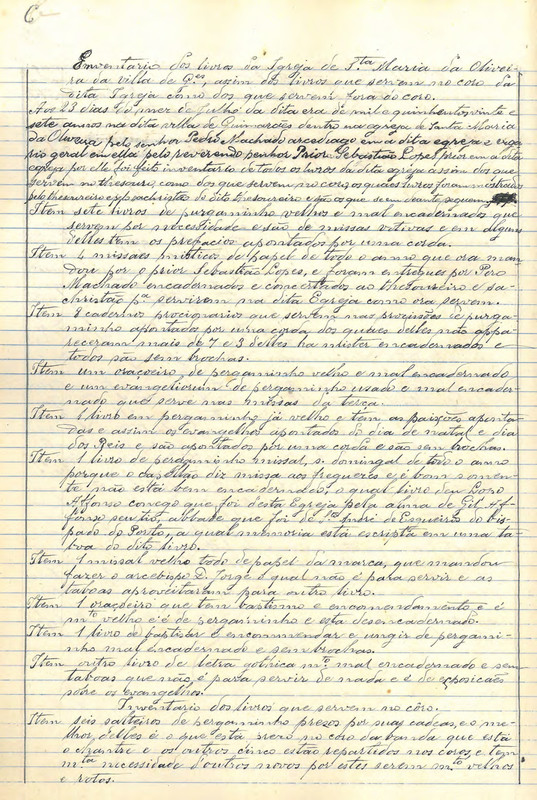 6
Enventario dos livros da Igreja de Sta Maria da Olivei-
ra da villa de G.es, assim dos livros que servem no coro da
dita Igreja como dos que servem fora do coro.
Aos 23 dias do mez de Julho da dita era de mil e quinhentos vinte e
sete annos na dita villa de Guimarães dentro na egreja de Santa Maria
da Oliveira pelo senhor Pedro Machado arcediago em a dita egreja e viga
rio geral em ella pelo reverendo senhor Prior Sebastião Lopes prior em a dita
egreja por elle foi feito inventario de todos os livros da dita egreja assim dos que
servem no thesouro, como dos que servem no coro, os quaes livros foram mostrados
pelo thesoureiro e sachristão do dito thesoureiro e são os que se em deante seguem
Item sete livros de purgaminho velhos e mal encadernados que
servem por necessidade e são de missas votivas e em alguns
delles tem os prefacios apontados por uma corda.
Item 4 missaes misticos de papel de todo o anno que ora man-
dou por o prior Sebastião Lopes, e foram entregues por Pero
Machado encadernados e concertados ao thesoureiro e sa-
christão p.a servirem na dita Egreja como ora servem.
Item 8 cadernos procionarios que servem nas procisões de purga-
minho apontados por uma corda dos quaes delles não appa-
receram mais de 7 e 3 destes ha mister encadernados e
todos são sem brochas.
Item um oraçoeiro, de pergaminho velho e mal encadernado
e um evangeliorum de pergaminho usado e mal encader-
nado que serve nas missas da terça.
Item 1 livro em pergaminho já velho e tem as paixões aponta
das e assim os evangelhos apontados do dia de natal e dia
dos Reis e são apontados por uma corda e são sem brochas.
Item 1 livro de pergaminho missal, s. domingal de todo o anno
porque o cas diz missa aos freguezes e é bom somen-
te não está bem encadernado, o qual livro deu Lopo
Affonso conego que foi desta Egreja pela alma de Gil Af-
fonso seu tio, abbade que foi de S.to André de Esqueiro do bis-
pado do Porto, a qual memoria está escripta em uma ta-
boa do dito livro.
Item 1 missal velho todo de papel da marca, que mandou
fazer o arcebispo D. Jorge o qual não é para servir e as
taboas aproveitaram para outro livro.
Item 1 oraçoeiro que tem bastismo e encomendamento e é
m.to velho e é de pergaminho e está desencadernado.
Item 1 livro de baptisar e encommendar e ungir de pergami-
nho mal encadernado e sem brochas.
Item outro livro de letra gothica m.to mal encadernado e sem
taboas que não é para servir de nada e é de exposicães
sobre os evangelhos.
Inventario dos livros que servem no côro.
Item seis salteiros de pergaminho prezos por suas cadeas, e o me-
lhor, delles é o que está no coro da banda que está
o chantre e os outros cinco estão repartidos nos coros, e tem
m.ta necessidade d'outros novos por estes serem m.to velhos
e rotos.